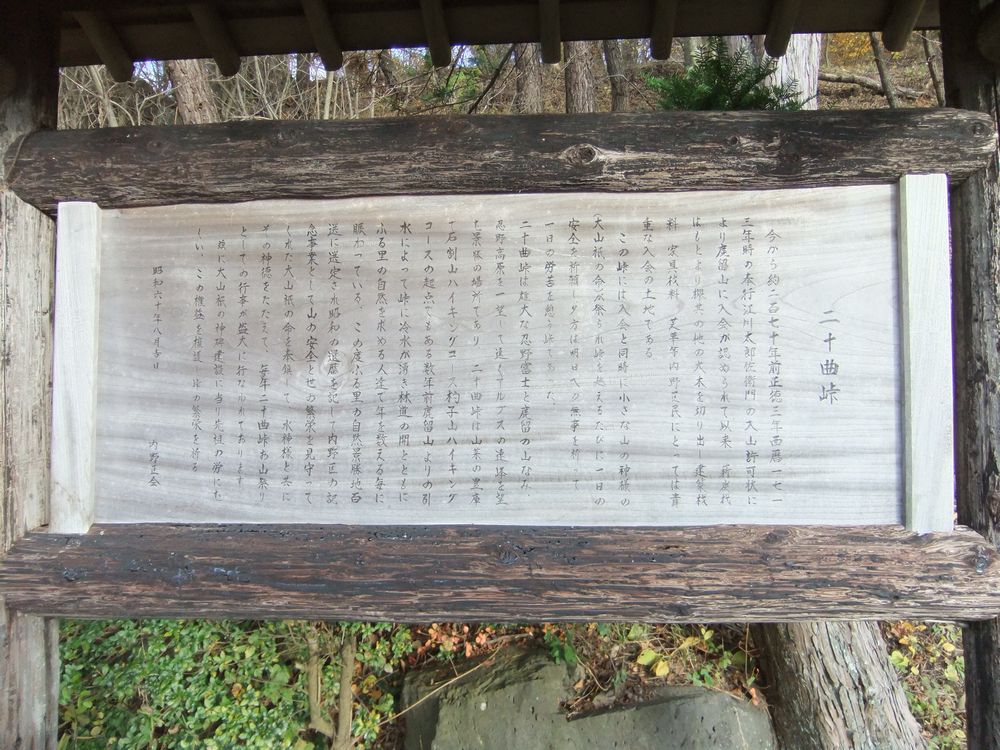 二十曲峠
今から約二百七十年前正徳三年西暦一七一
三年時の奉行江川太郎左衛門の入山許可状に
より鹿留山に入会が認められて以来、薪炭材
はもとより欅其の他の大木を切り出し建築材
料、家具材料、芝草等内野区民にとっては貴
重な入会の土地である
この峠には入会と同時に小さな山の神様の
(大山祇の命)が祭られ峠を越えるたびに一日の
安全を祈願し夕方は明日への無事を祈りて
一日の労苦を憩う峠であった、
二十曲峠は雄大な忍野富士と鹿留の山なみ、
忍野高原を一望して遠くアルプスの連峰を望
む景勝の場所であり、二十曲峠は山菜の宝庫
で石割山ハイキングコース杓子山ハイキング
コースの起点でもある数年前鹿留山よりの引
水によって峠に冷水が湧き林道の開とともに
ふる里の自然を求める人達で年を数える毎に
賑わっている、この度ふる里の自然景勝地百
選に選定され昭和の還暦を記して内野区の記
念事業として山の安全と世の繁栄を見守って
くれた大山祇の命を奉鎮して、水神様と共に
その神徳をたたえて、毎年二十曲峠お山祭り
としての行事が盛大に行なわれております
後に大山祇の神碑建設に当り先祖の労にむ
くい、この権益を推進し峠の繁栄を祈る
昭和六十年八月吉日
内野区会